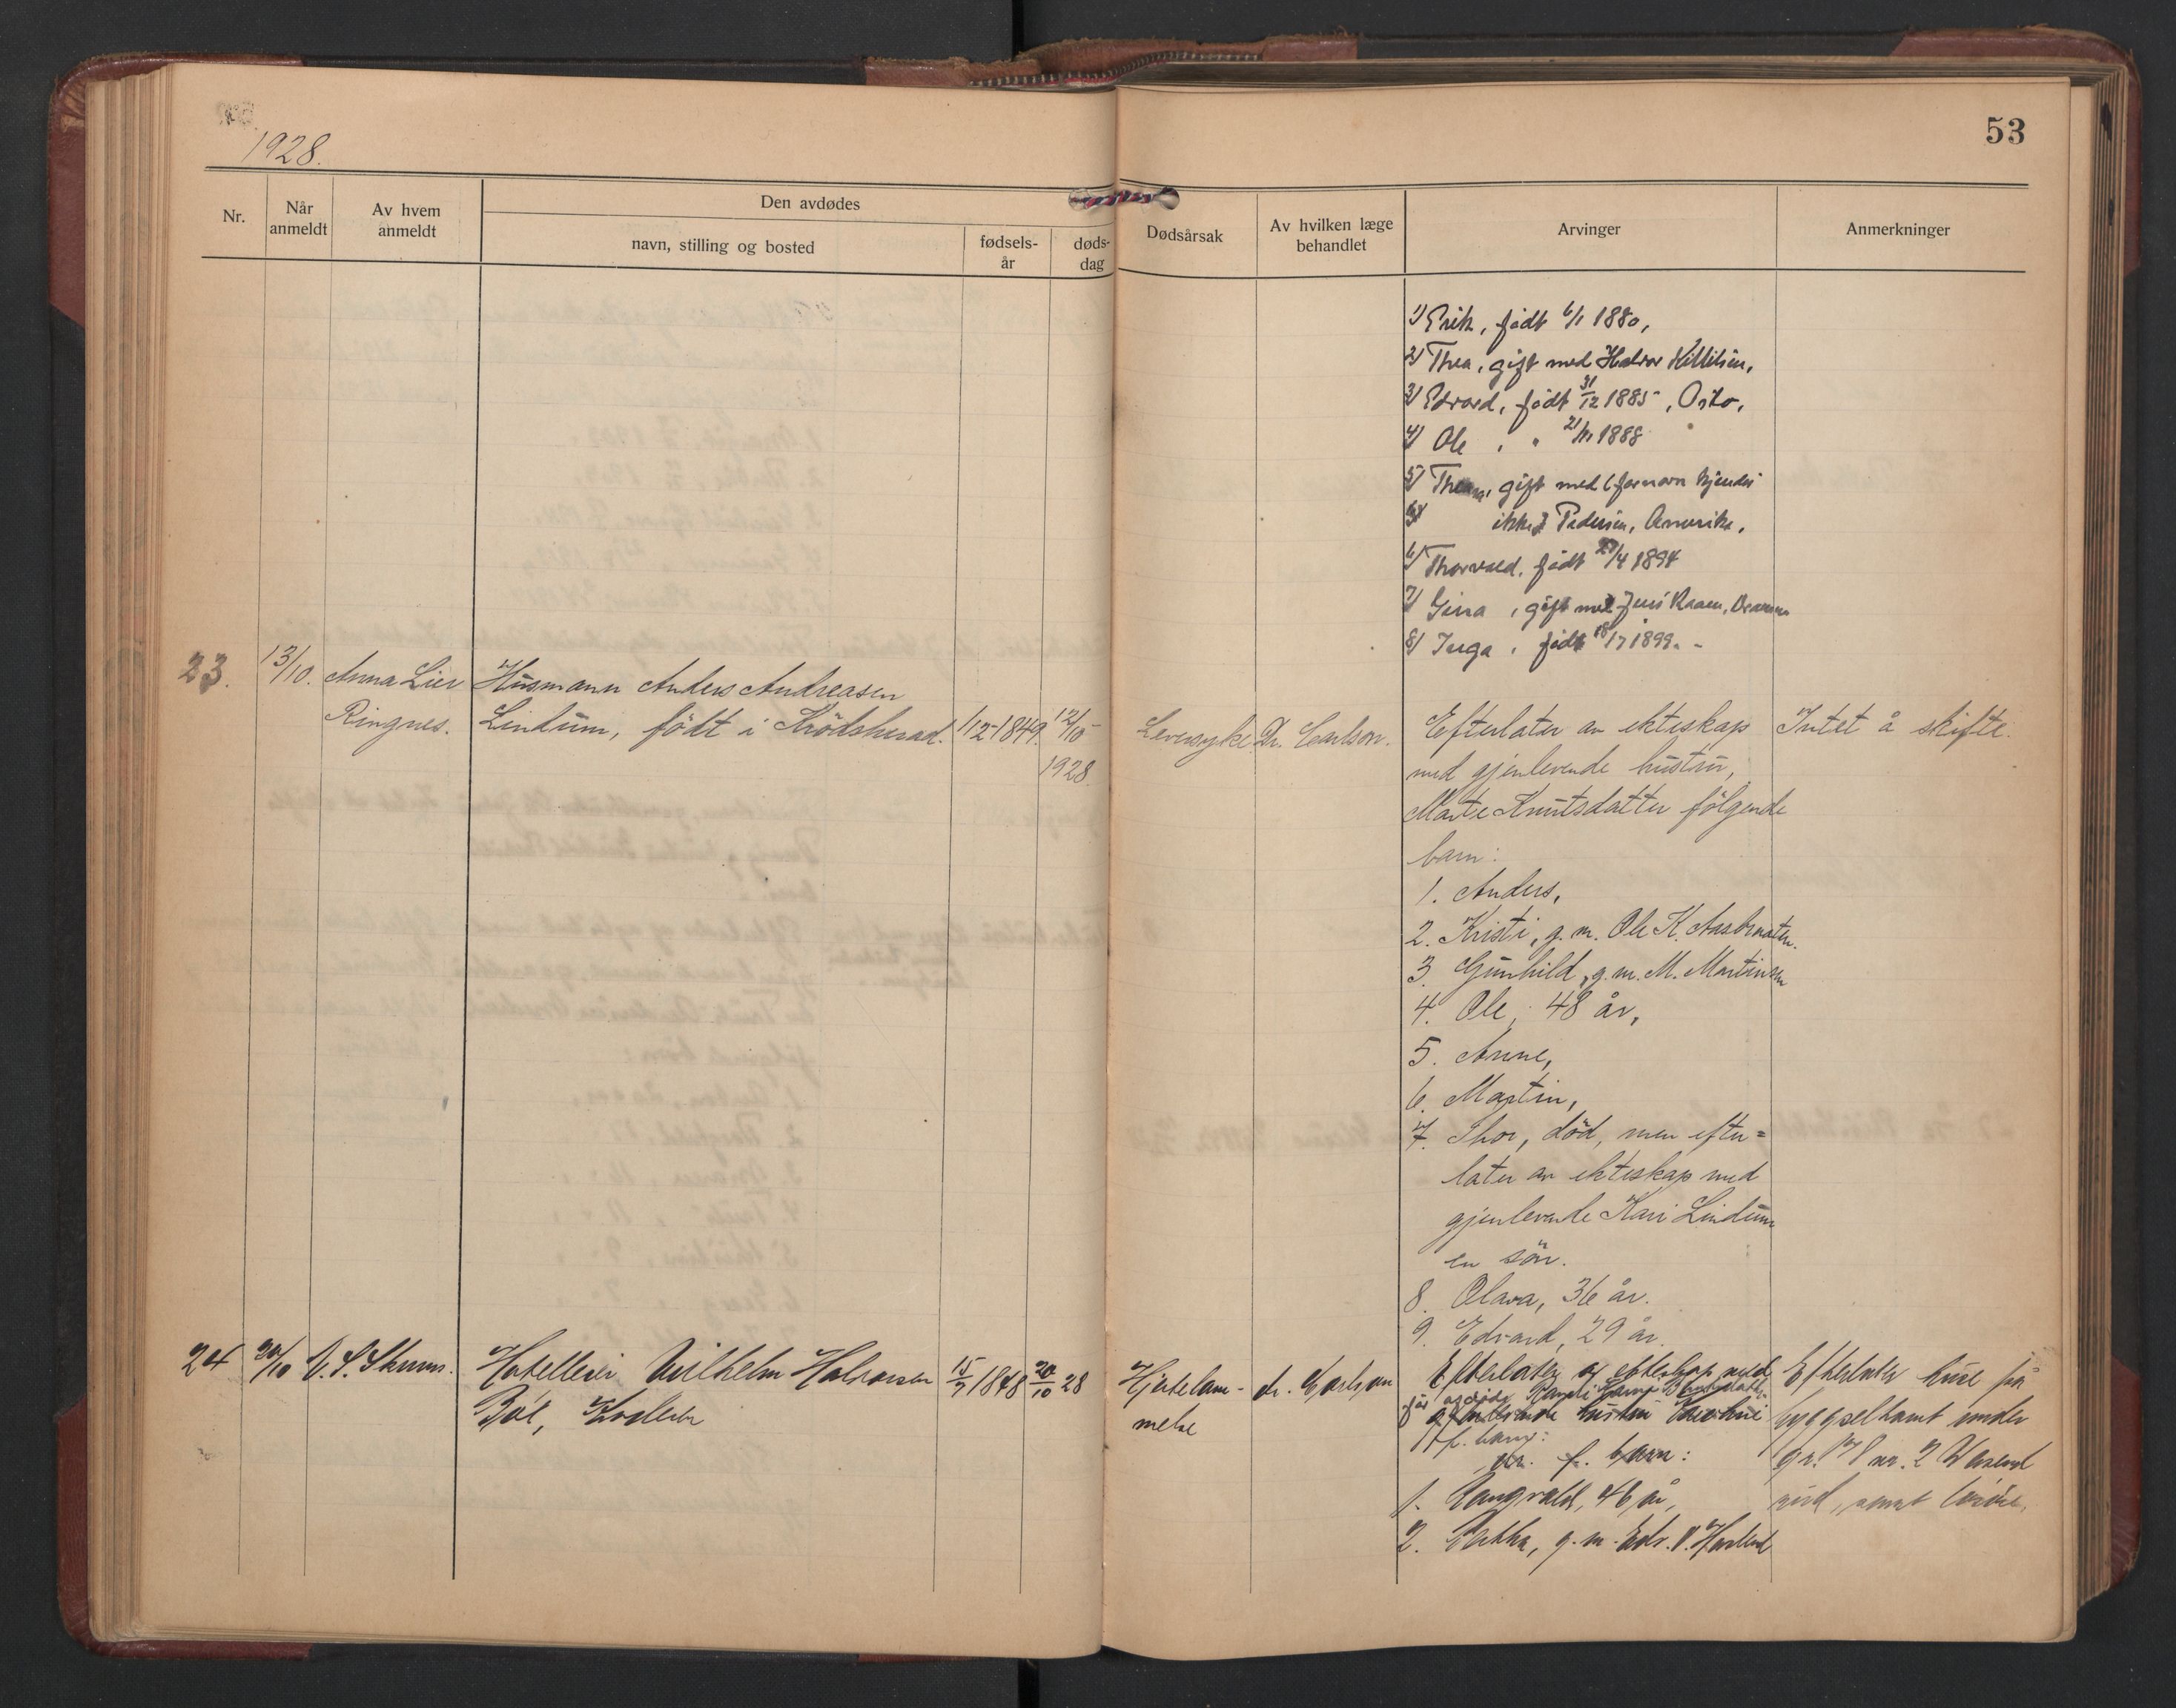 1928.
53
Nr.
Når anmeldt
Av hvem anmeldt
Den avdødes
navn, stilling og bosted
fødsels-år
døds-dag
Dødsårsak
Av hvilken læge behandlet
Arvinger
Anmerkninger
1) Erik, født 6/1 1880,
2) Thea, gift med Halvor Killilsen,
3) Edvard, født 31/12 1885, Oslo,
4) Ole , " 21/11 1888
5) gift med (fornavn kjendes
ikke) Pedersen, Amerika,
6) Thorvald, født 1894
7) Gina , gift med Jens Raaen, Drammen
8) Inga , født 18/7 1899. -
23. 13/10. Anna Lier Husmann Anders Andreasen
Ringnes. Lindum, født i Krödsherad. 1/12-1849. 12/10-
1928
Leversyke Dr. Carlson. Efterlater av ekteskap Intet å skifte.
med gjenlevende hustru,
Marte Knutsdatter følgende
barn:
1. Anders,
2. Kristi, g.m. Ole K.
3. Gunhild, g.m. M. Martinsen
4. Ole, 48 år,
5. Anne,
6. Martin,
7. Thor, död, men efter=
later av ekteskap med
gjenlevende Kari Lindum
en sön.
8. Olava, 36 år.
9. Edvard, 29 år.
24 20/10 Hotelleier Vilhelm Halvorsen 15/7 1848 20/10 28
Böe,
Hjertelam- dr. Carlson Efterlater av ekteskap med Efterlater huse på
melse
før avdøde
gjenlevende hustru
f. barn:
f. barn:
byggselkomt under
gr. 17 br.nr. 2
samt
1. Langvald, 46 år,
2. g.m. Edv.